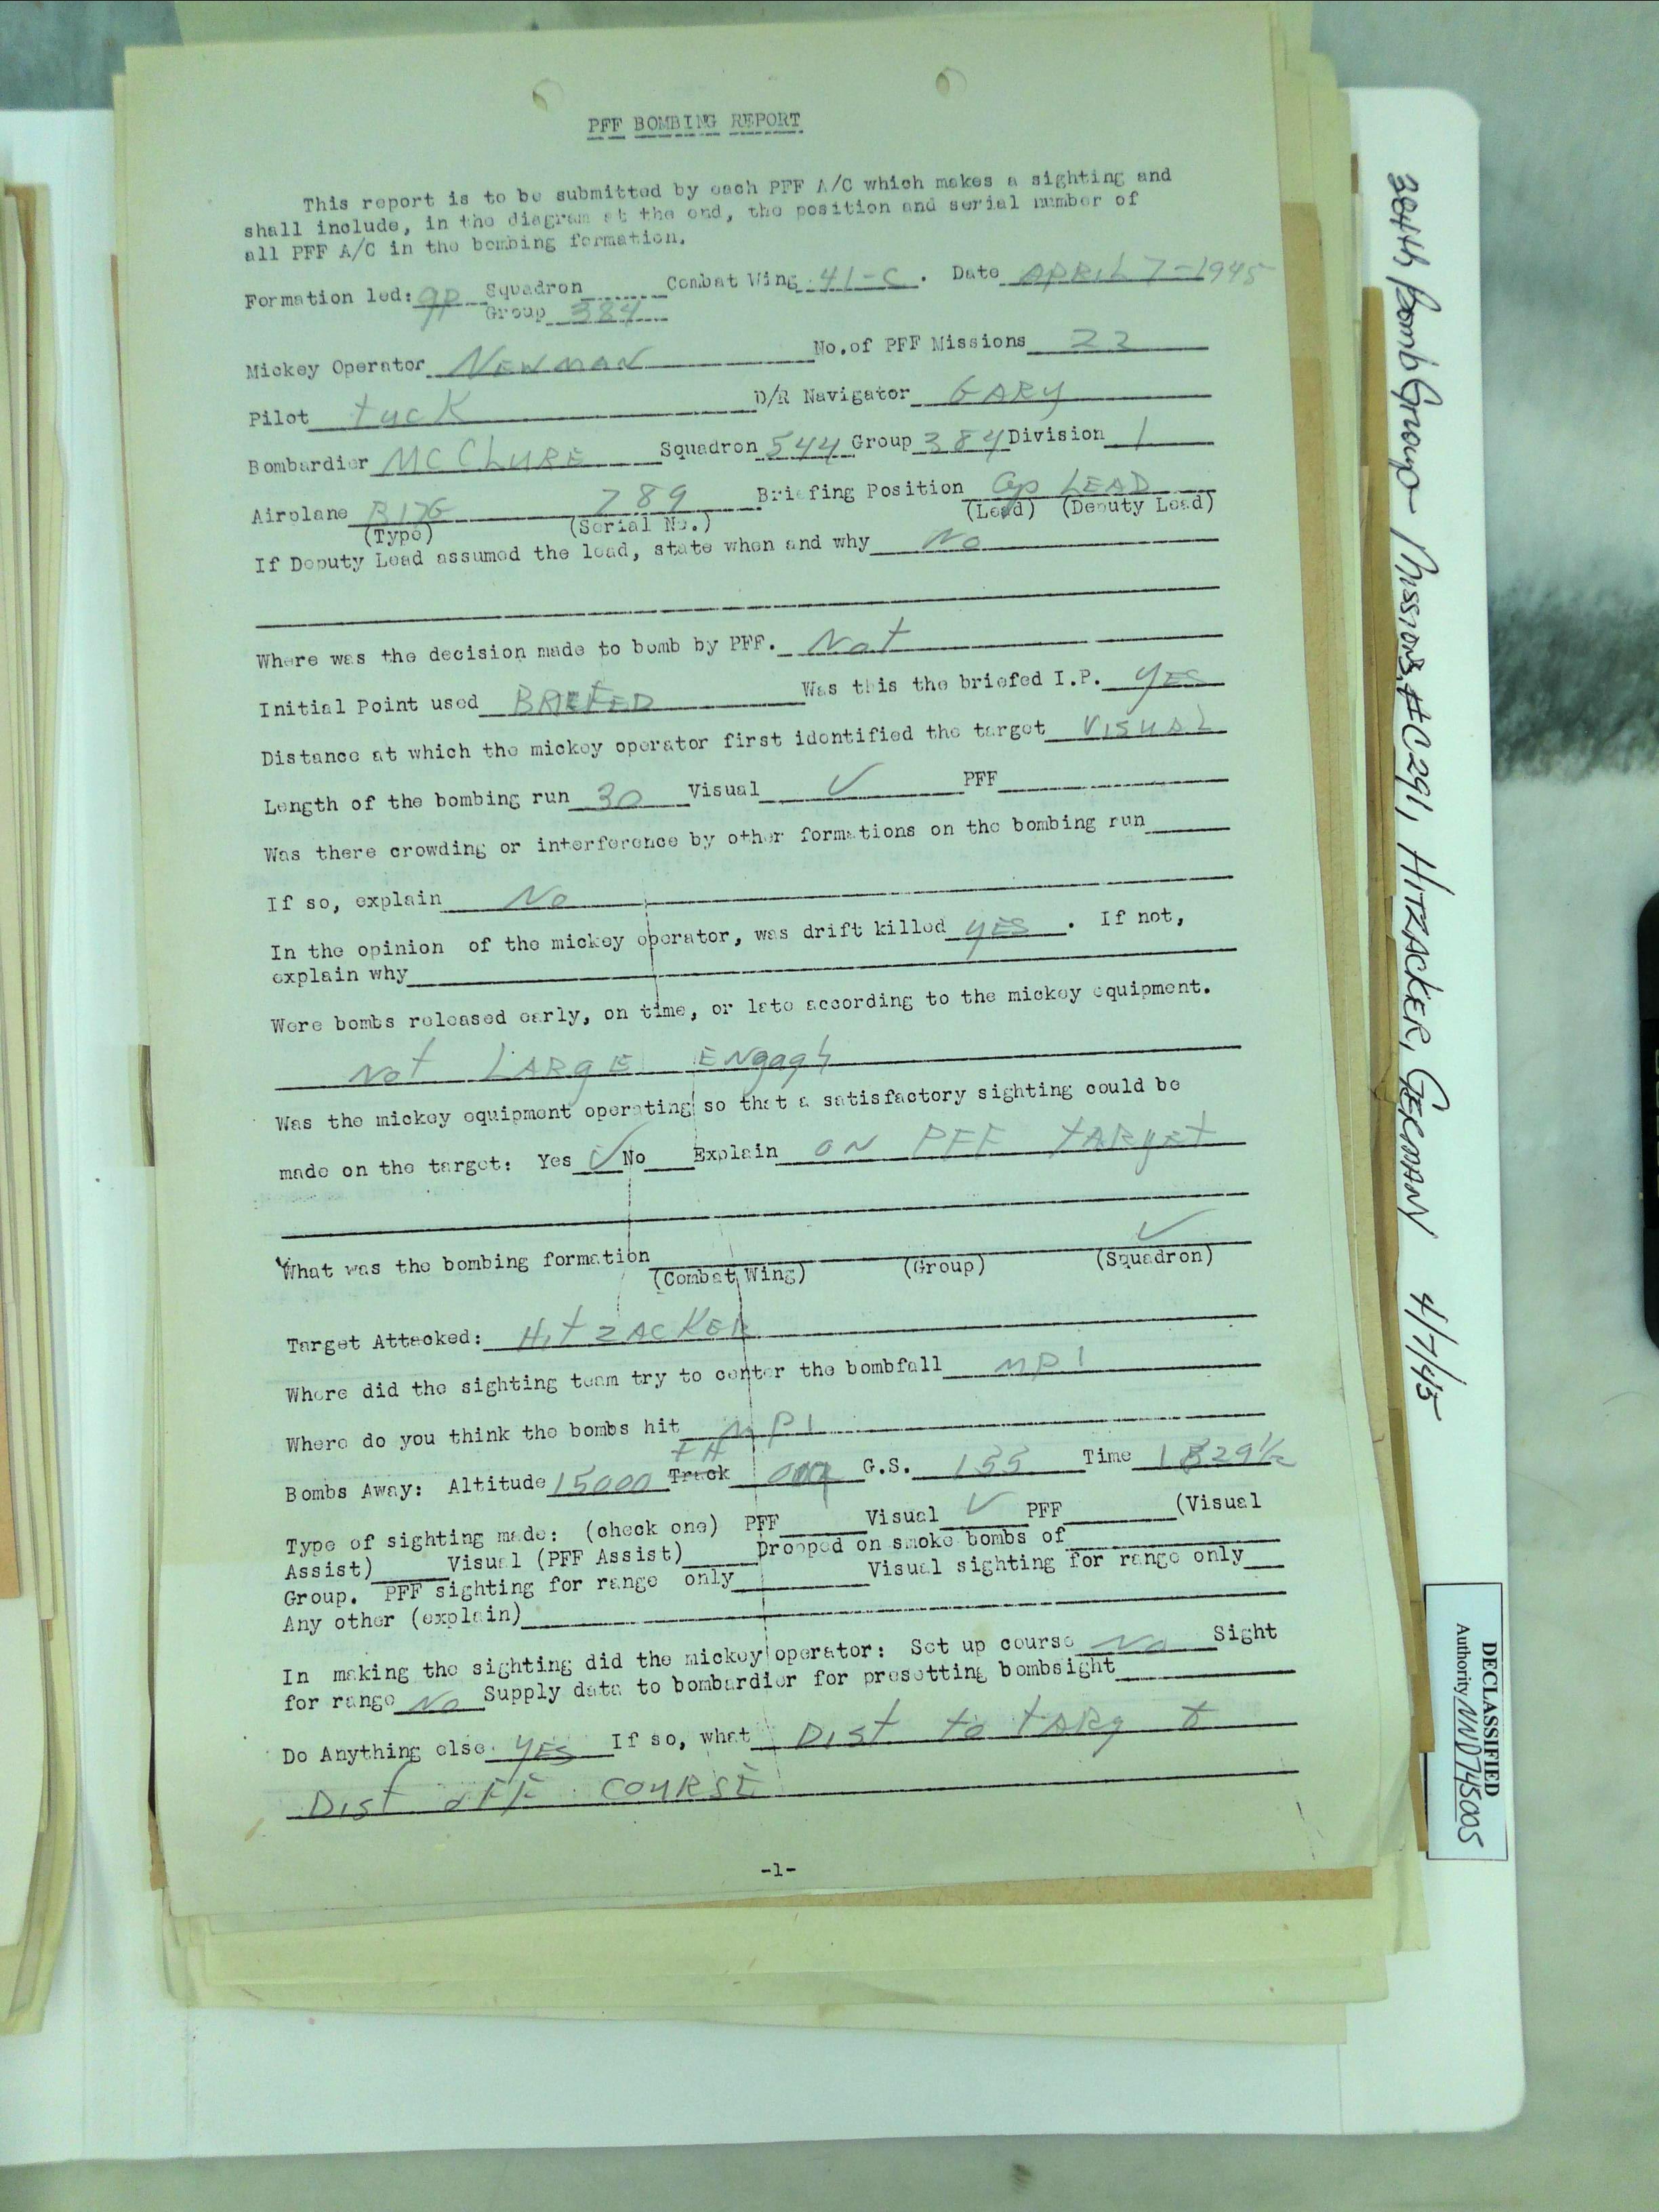 PFF BOMBING REPORT
This report is to be submitted by each PFF A/C which makes a sighting and
shall include, in the diagram at the end, the position and serial number of
all PFF A/C in the bombing formation.
Formation led: gp Squadron Combat Wing 41-C. Date APRIL 7-1945
Group 384
Mickey Operator NEWMAN No. of PFF Missions 22
Pilot tuck D/R Navigator GARY
Bombardier MCCLURE Squadron 544 Group 384 Division 1
Airplane B17G 789 Briefing Position Gp LEAD
(Type) (Serial No.) (Lead) (Deputy Lead)
If Deputy Lead assumed the lead, state when and why No
Where was the decision made to bomb by PFF. Not
Initial Point used BRIEFED Was this the briefed I.P. YES
Distance at which the mickey operator first identified the target VISUAL
Length of the bombing run 30 Visual ✓ PFF
Was there crowding or interference by other formations on the bombing run
If so, explain No
In the opinion of the mickey operator, was drift killed YES. If not,
explain why
Were bombs released early, on time, or late according to the mickey equipment.
Not LARgE
Was the mickey equipment operating so that a satisfactory sighting could be
made on the target: Yes ✓ No Explain ON PFF TARgET
What was the bombing formation ✓
(Combat Wing) (Group) (Squadron)
Target Attacked: HitZACKER
Where did the sighting team try to center the bombfall MPI
Where do you think the bombs hit MPI
TH
Bombs Away: Altitude 15000 Track G.S. 155 Time 1829½
Type of sighting made: (check one) PFF Visual ✓ PFF (Visual
Assist) Visual (PFF Assist) Dropped on smoke bombs of
Group. PFF sighting for range only Visual sighting for range only
Any other (explain)
In making the sighting did the mickey operator: Set up course No Sight
for range No Supply data to bombardier for presetting bombsight
Do Anything else YES If so, what Dist to tARg t
Dist OFF COURSE
-1-
384th Bomb Group Missions #C291, HITZACKER, GERMANY 4/7/45
DECLASSIFIED
Authority NND745005